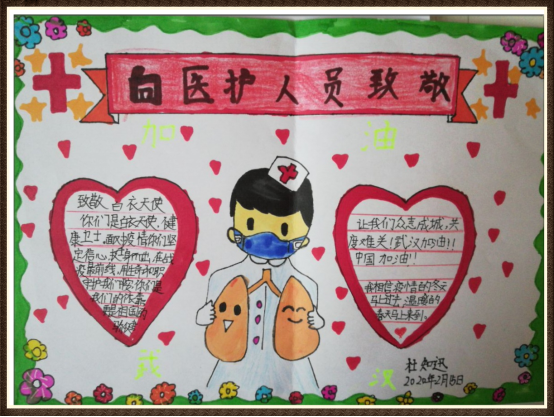 向医护人员致敬
加油
致敬 白衣天使
你们是白衣天使,健
康卫士,面对疫情你们坚
定信心,挺身而出,在战
疫最前线,用生命和职
守护我们
我们的
让我们众志成城,共
度难关!武汉加油!!
中国加油!!
我相信疫情的冬天
马上过去,温暖的
春天马上来到。
武汉
杜知迅
2020年2月8日